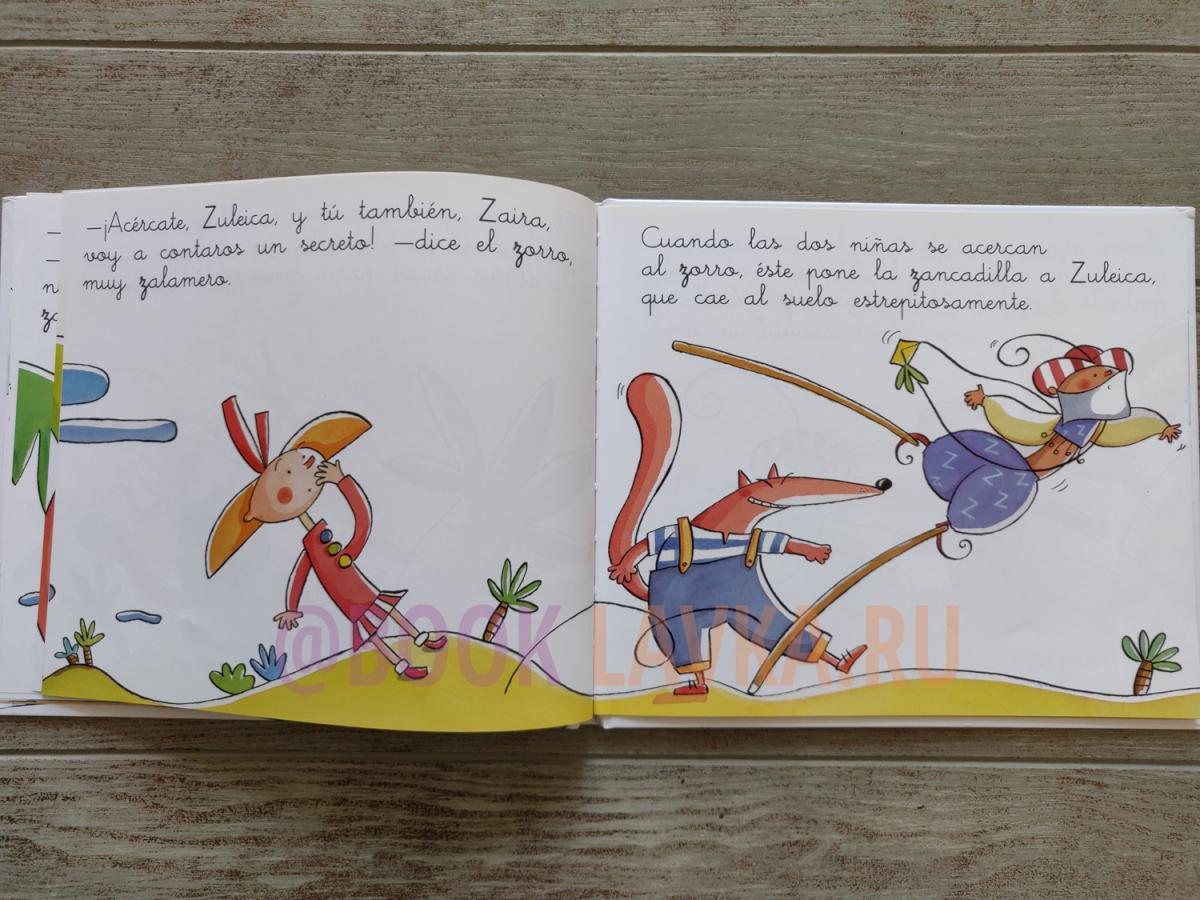 —¡Acércate, Zuleica, y tú también, Zaira,
voy a contaros un secreto! —dice el zorro,
muy zalamero.
Cuando las dos niñas se acercan
al zorro, éste pone la zancadilla a Zuleica,
que cae al suelo estrepitosamente.
@BOOK LAVKA.RU